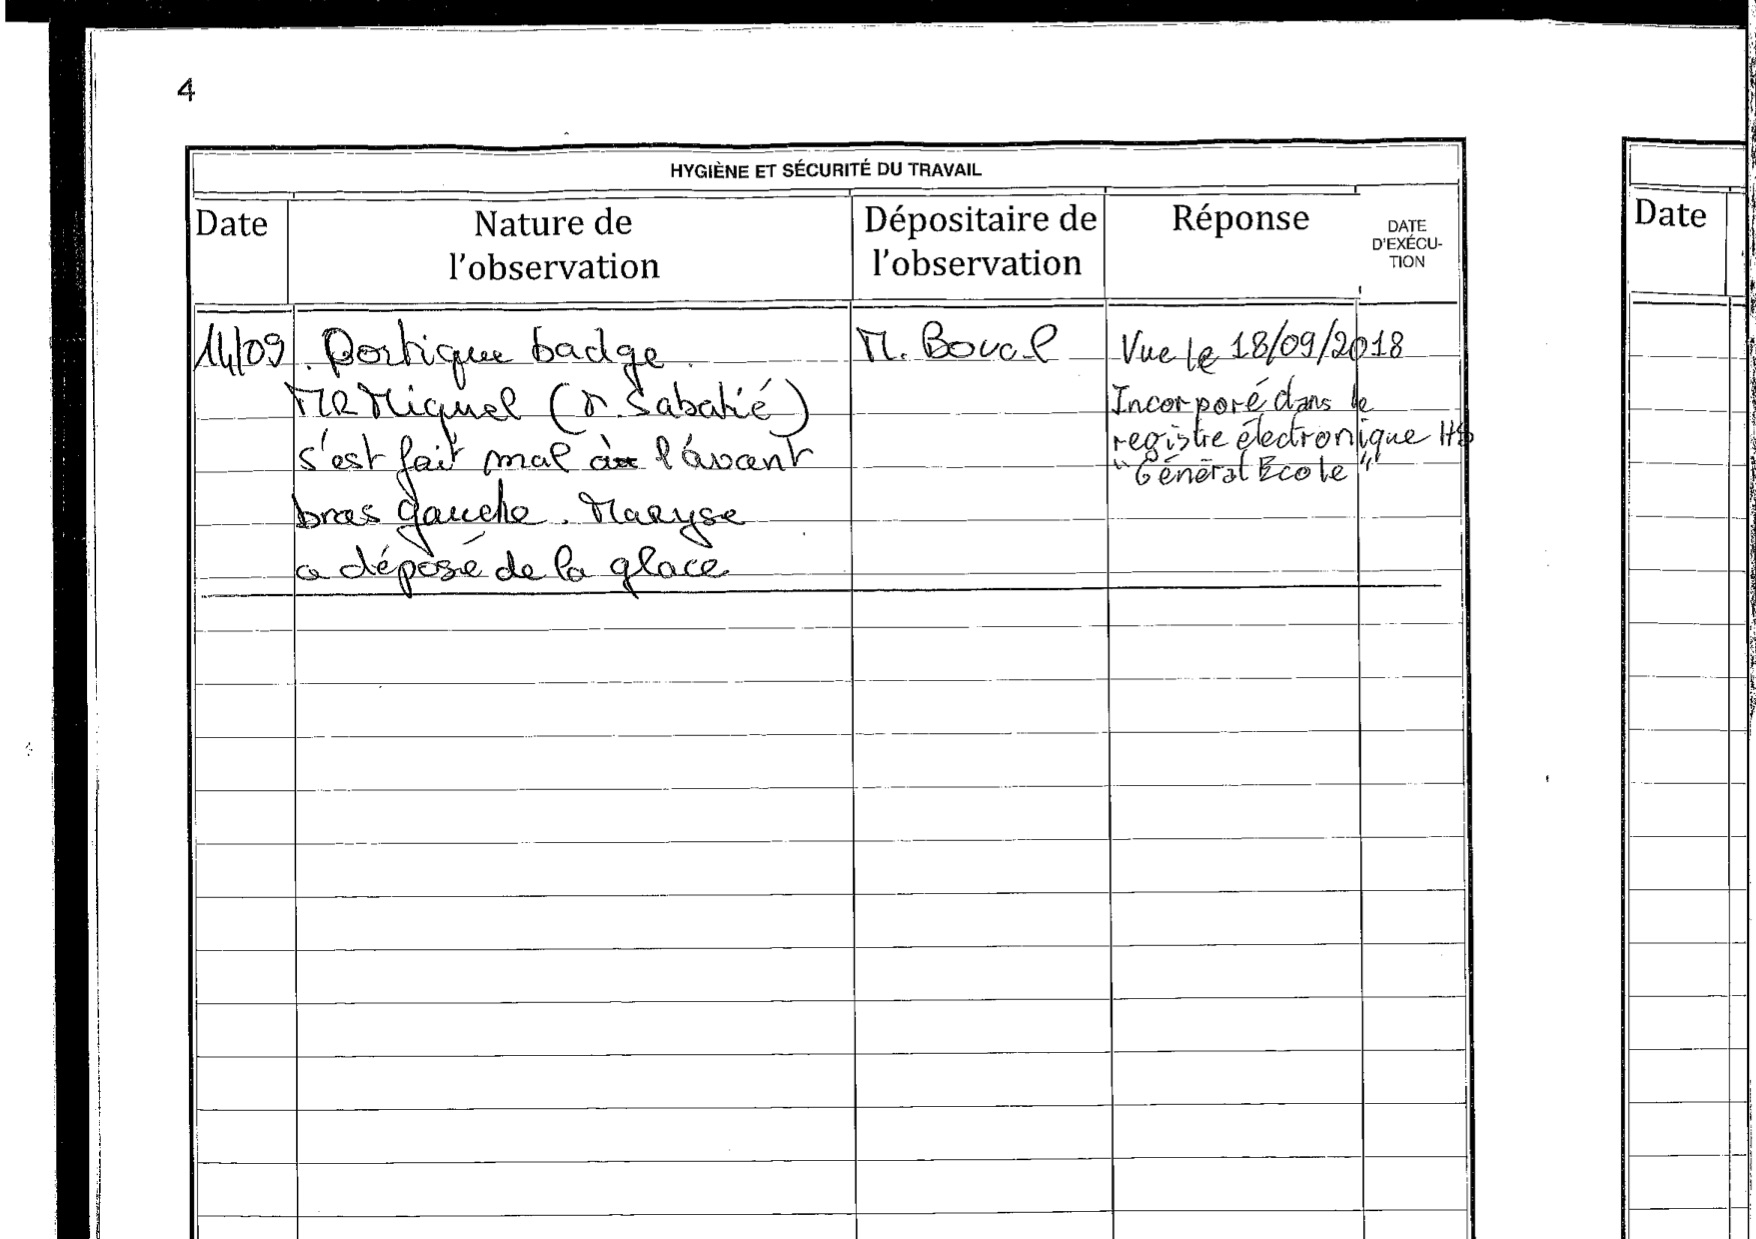 4
HYGIÈNE ET SÉCURITÉ DU TRAVAIL
Date
Nature de
l'observation
Dépositaire de
l'observation
Réponse
DATE
D'EXÉCU-
TION
14/09
. Portique badge.
MR Miquel (M. Sabatié)
s'est fait mal à l'avant
bras gauche. Maryse
a déposé de la glace
M. Boual
Vue le 18/09/2018
Incorporé dans le
registre électronique HS
"Général Ecole"
Date